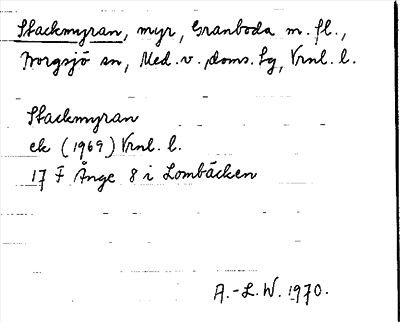 Stackmyran, myr, Granboda m. fl.,
Borgsjö sn, Med. v. doms. tg, Vrnl. l.
Stackmyran
ek (1969) Vrnl. l.
17 F Ånge 8 i Lombäcken
A.-L. W. 1970.